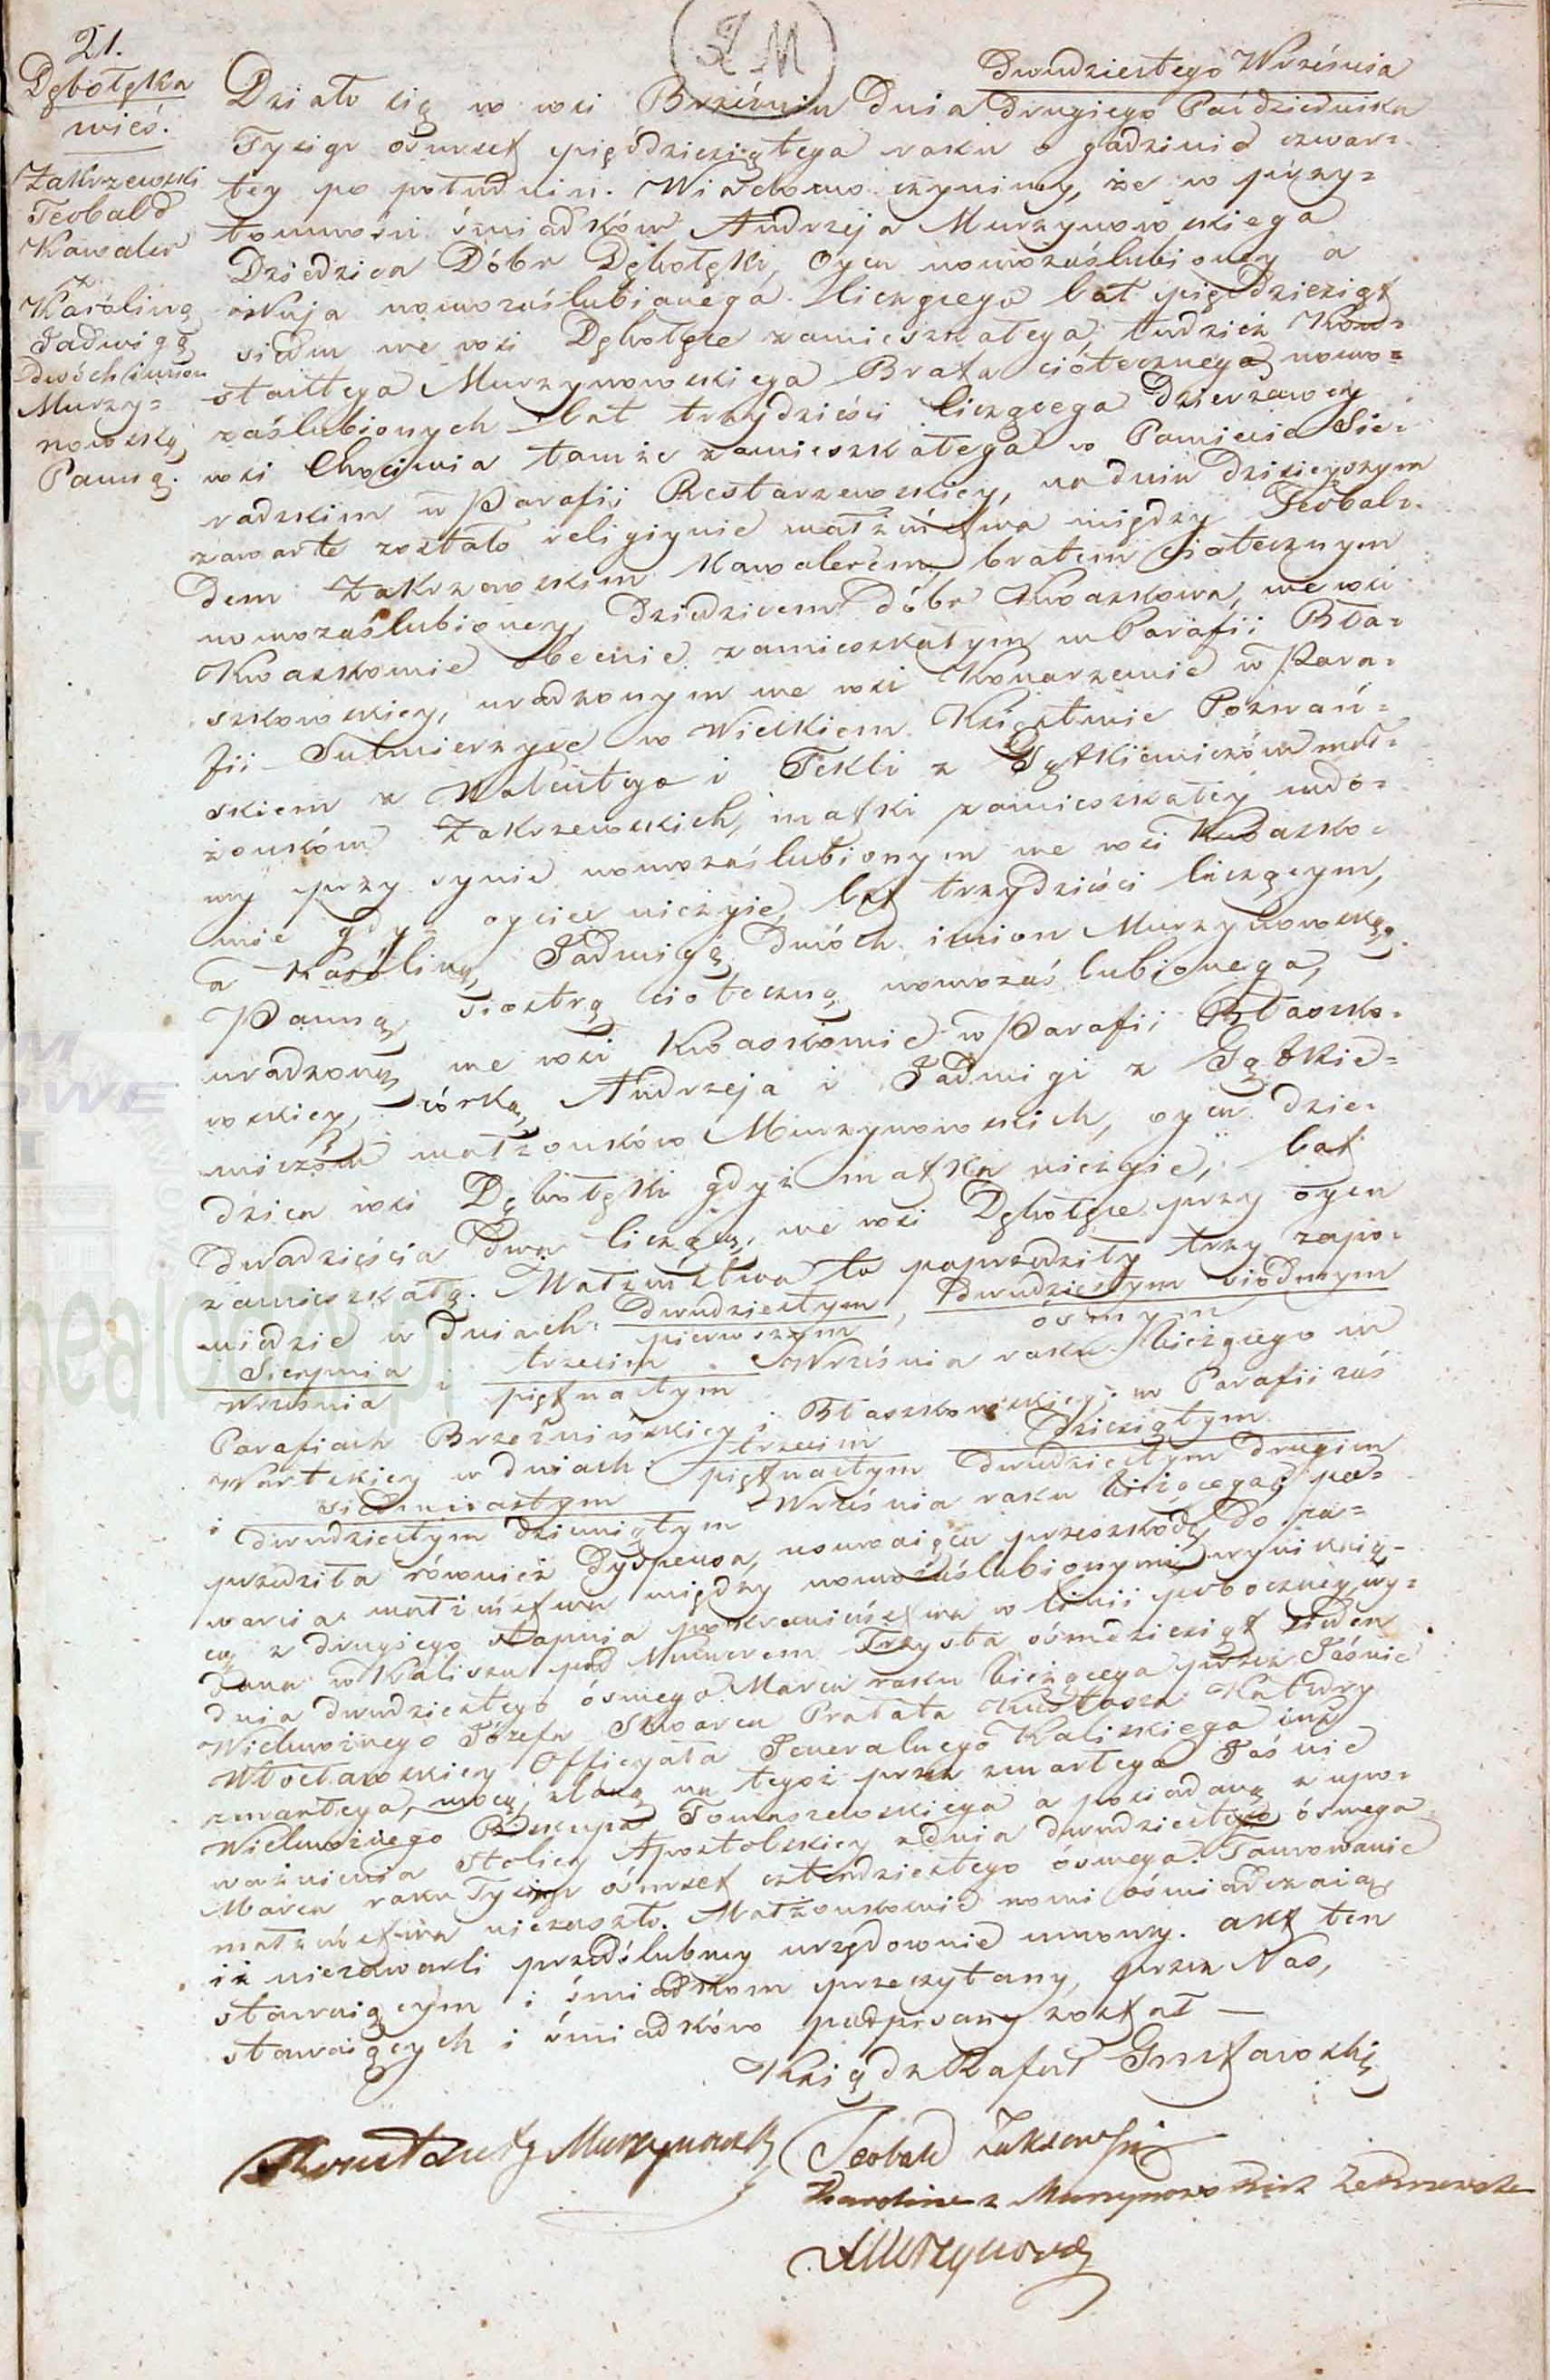 21.
Dębołęka
wieś.
Zakrzewski
Teobald
Kawaler
z
Karoliną
Jadwigą
dwóch imion
Murzy=
nowską
Panną.
Dwudziestego Września
Działo się w wsi Brzeźniu Dnia Drugiego Października
Tysiąc ośmset pięćdziesiątego roku o godzinie czwar=
tey po południu. Wiadomo czynimy, że w przy=
tomności świadków Andrzeja Murzynowskiego
Dziedzica Dóbr Dębołęki, Oyca nowozaślubioney a
wuja nowozaślubionego liczącego lat pięćdziesiąt
siedm we wsi Dębołęce zamieszkałego, tudzież Kon=
stantego Murzynowskiego Brata ciotecznego nowo=
zaślubionych lat trzydzieści liczącego Dzierżawcy
wsi Chociwia tamże zamieszkałego w Powiecie Sie=
radzkim w Parafii Restarzewskiey, na dniu dzisieyszym
zawarte zostało religiynie małżeństwo między Teobal=
dem Zakrzewskim Kawalerem, bratem ciotecznym
nowozaślubioney, Dziedzicem dóbr Kwaskowa, we wsi
Kwaskowie obecnie zamieszkałym w Parafii Bła=
szkowskiey, urodzonym we wsi Konarzewie w Para=
fii Sulmierzyce w Wielkiem Księstwie Poznań=
skiem z Walentego i Tekli z Gątkiewiczów mał=
żonków Zakrzewskich, matki zamieszkałey wdo=
wy przy synie nowozaślubionym we wsi Kwasko=
wie gdyż oyciec nieżyie, lat trzydzieści liczącym,
a Karoliną Jadwigą dwóch imion Murzynowską
Panną, siostrą cioteczną nowozaślubionego,
urodzoną we wsi Kwaskowie w Parafii Błaszko=
wskiey, córką Andrzeja i Jadwigi z Gątkie=
wiczów małżonków Murzynowskich, oyca dzie=
dzica wsi Dębołęki gdyż matka nieżyie, lat
dwadzieścia dwa liczącą, we wsi Dębołęce przy oycu
zamieszkałą. Małżeństwo to poprzedziły trzy zapo=
wiedzie w dniach: dwudziestym pierwszym, dwudziestym siódmym ósmym
Sierpnia Września i trzecim piętnastym Września roku bieżącego w
Parafiach Brzeźnińskiey i Błaszkowskiey; w Parafii zaś
Wartskiey w dniach: trzecim piętnastym dziesiątym dwudziestym drugim
i siedmnastym dwudziestym dziewiątym Września roku bieżącego; po=
przedziła również Dyspensa, usuwaiąca przeszkodę do za=
warcia małżeństwa między nowozaślubionymi wynikaią=
cą z drugiego stopnia pokrewieństwa w linii poboczney, wy=
dana w Kaliszu pod Numerem Trzysta ośmdziesiąt siedem
dnia dwudziestego ósmego Marca roku bieżącego przez Jaśnie
Wielmożnego Józefa Skwarca Prałata Kustosza Katedry
Włocławskiey Officyała Jeneralnego Kaliskiego już
zmarłego, mocą zlaną na tegoż przez zmarłego Jaśnie
Wielmożnego Biskupa Tomaszewskiego a posiadaną z upo=
ważnienia Stolicy Apostolskiey z dnia dwudziestego ósmego
Marca roku Tysiąc ośmset czterdziestego ósmego. Tamowanie
małżeństwa niezaszło. Małżonkowie nowi oświadczaią
iż niezawarli przedślubney urzędownie umowy. Akt ten
stawaiącym i świadkom przeczytany, przez Nas,
stawaiących i świadków podpisany został —
Ksiądz Rafał Grzstawoski
Konstanty Murzynowski Teobald Zakrzewski
Karolina z Murzynowskich Zakrzewska
AMurzynowski